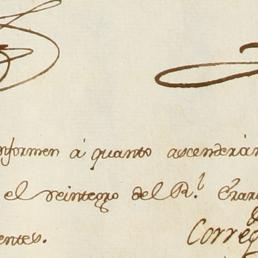 nformen á quanto ascenderán
el reintegro del R.l Erar
entes.
Correg